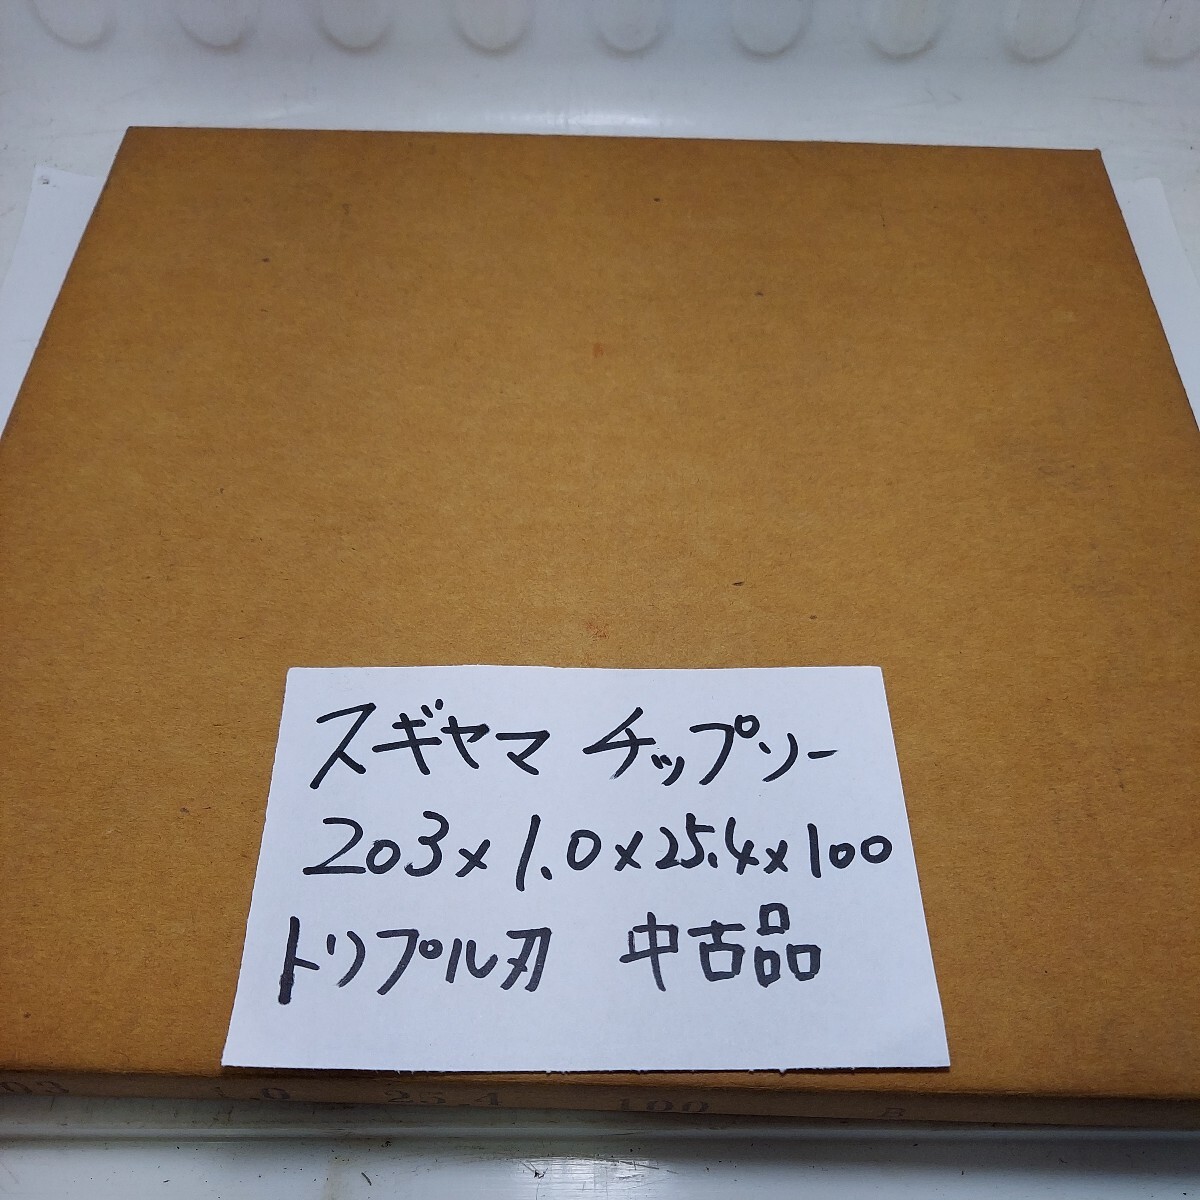 スギヤマ チップソー
203×1.0×25.4×100
トリプル刃 中古品
03 1.0 25.4 100 B